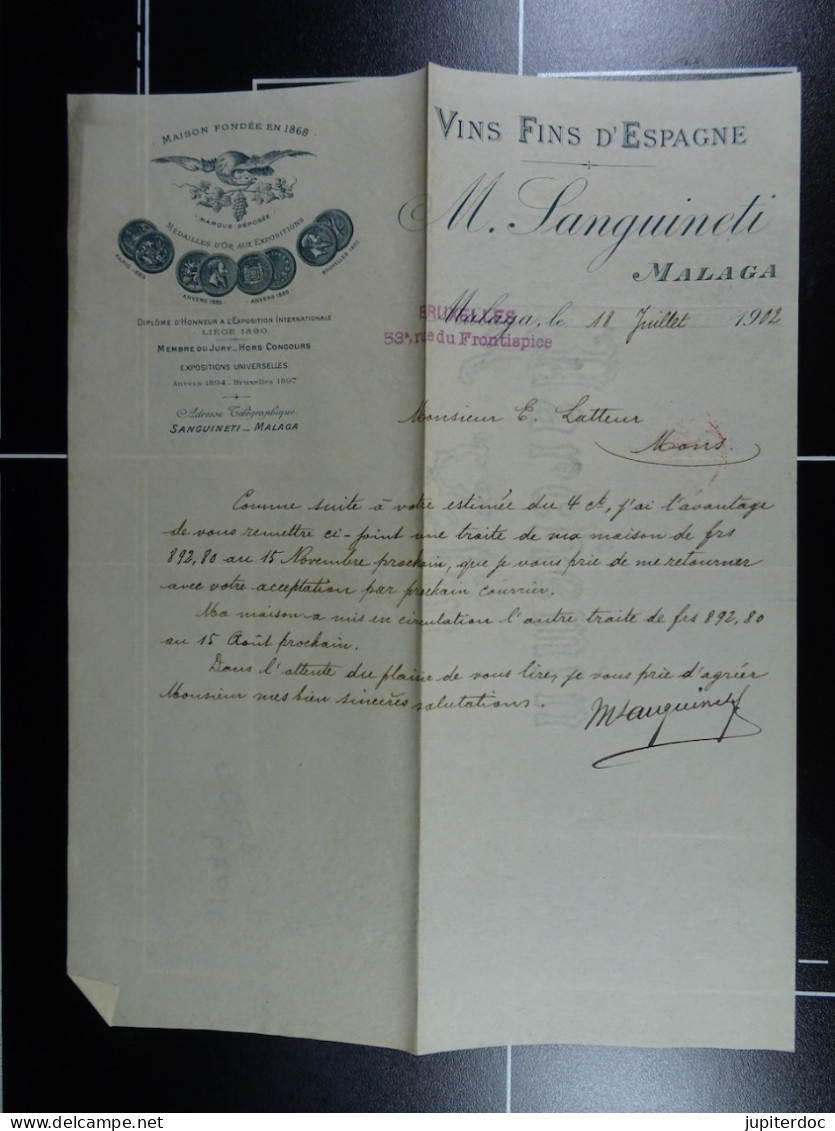 MAISON FONDÉE EN 1868
MARQUE DÉPOSÉE
MÉDAILLES D'OR AUX EXPOSITIONS
ANVERS 1885
ANVERS 1885
DIPLÔME D'HONNEUR A L'EXPOSITION INTERNATIONALE
LIÉGE 1890
MEMBRE DU JURY_HORS CONCOURS
EXPOSITIONS UNIVERSELLES
Anvers 1894_Bruxelles 1897
Adresse Télégraphique
SANGUINETI_MALAGA
VINS FINS D'ESPAGNE
M. Sanguineti
MALAGA
Malaga, le 18 Juillet 1902
BRUXELLES
53A, rue du Frontispice
Monsieur E. Latteur
Mons.
Comme suite à votre estimée du 4 ct, j'ai l'avantage
de vous remettre ci-joint une traite de ma maison de frs
892,80 au 15 Novembre prochain, que je vous prie de me retourner
avec votre acceptation par prochain courrier.
Ma maison a mis en circulation l'autre traite de frs 892,80
au 15 Août prochain.
Dans l'attente du plaisir de vous lire, je vous prie d'agréer
Monsieur mes bien sincères salutations.
MSanguineti
delcampe.net
jupiterdoc